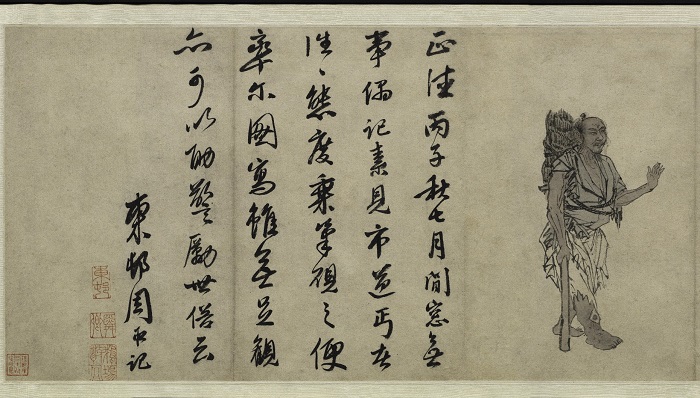 正德丙子秋七月閒窗無
事偶記素見市道丐者
往〻態度乘筆硯之便
率尓圖寫雖無足觀
亦可以助警勵世俗云
東邨周臣記
東邨